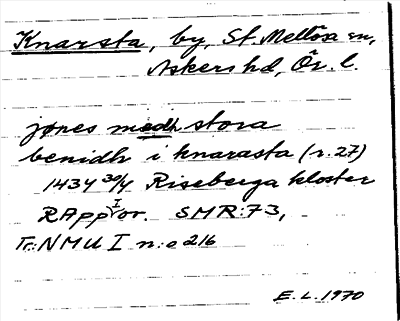 Knarsta, by, St. Mellösa sn,
Askers hd, Ör. l.
jønes medh stora
benidh i knarasta (r. 27)
1434 30/4 Riseberga kloster
RApp I or. SMR:73,
Tr: NMU I n:o 216
E. L. 1970